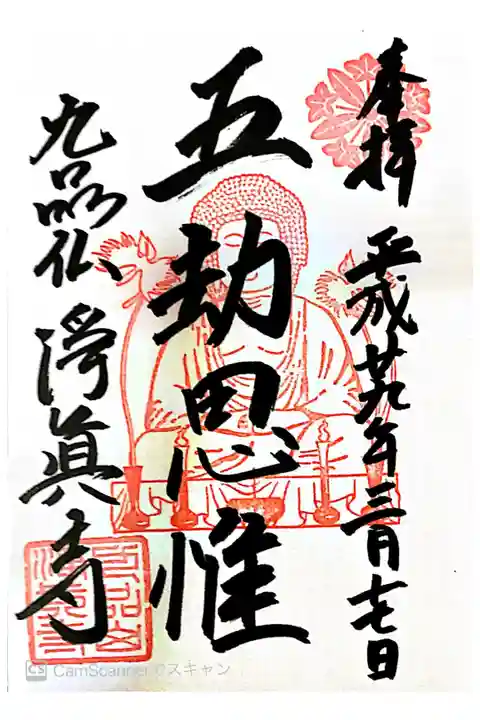 奉拝 平成廿九年三月十七日
五劫思惟
九品仏 淨眞寺
CS CamScanner でスキャン